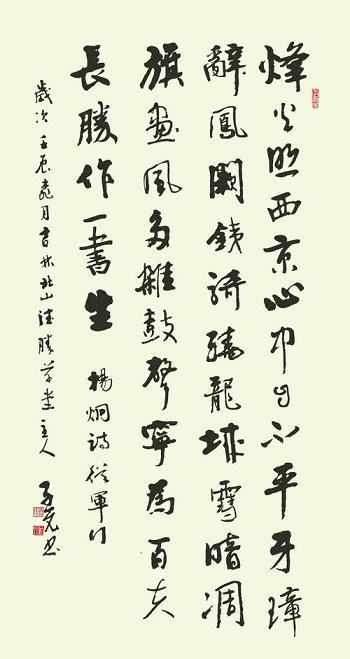 烽火照西京心中自不平牙璋
辭鳳闕銕騎繞龍城雪暗凋
旗畫風多雜鼓聲寧為百夫
長勝作一書生 楊炯詩從軍行
歲次壬辰月吉林北山勝堂主人